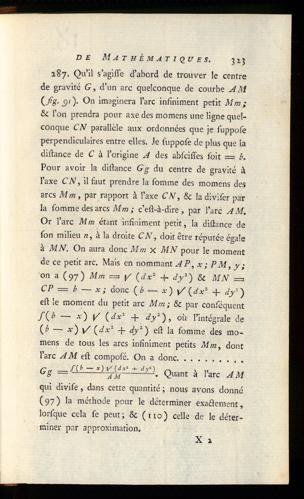 DE MATHÉMATIQUES. 323
287. Qu'il s'agiſſe d'abord de trouver le centre
de gravité G, d'un arc quelconque de courbe AM
(fig. 91). On imaginera l'arc infiniment petit Mm;
& l'on prendra pour axe des momens une ligne quel-
conque CN parallèle aux ordonnées que je ſuppoſe
perpendiculaires entre elles. Je ſuppoſe de plus que la
diſtance de C à l'origine A des abſciſſes ſoit = b.
Pour avoir la diſtance Gg du centre de gravité à
l'axe CN, il faut prendre la ſomme des momens des
arcs Mm, par rapport à l'axe CN, & la diviſer par
la ſomme des arcs Mm; c'eſt-à-dire, par l'arc AM.
Or l'arc Mm étant infiniment petit, la diſtance de
ſon milieu n, à la droite CN, doit être réputée égale
à MN. On aura donc Mm × MN pour le moment
de ce petit arc. Mais en nommant AP, x; PM, y;
on a (97) Mm = √ (dx² + dy²) & MN =
CP = b − x; donc (b − x) √ (dx² + dy²)
eſt le moment du petit arc Mm; & par conſéquent
ſ(b − x) √ (dx² + dy²), où l'intégrale de
(b − x) √ (dx² + dy²) eſt la ſomme des mo-
mens de tous les arcs infiniment petits Mm, dont
l'arc AM eſt compoſé. On a donc. . . . . . . . . .
Gg = ſ(b − x) √ (dx² + dy²) / AM. Quant à l'arc AM
qui diviſe, dans cette quantité; nous avons donné
(97) la méthode pour le déterminer exactement,
lorſque cela ſe peut; & (110) celle de le déter-
miner par approximation.
X 2